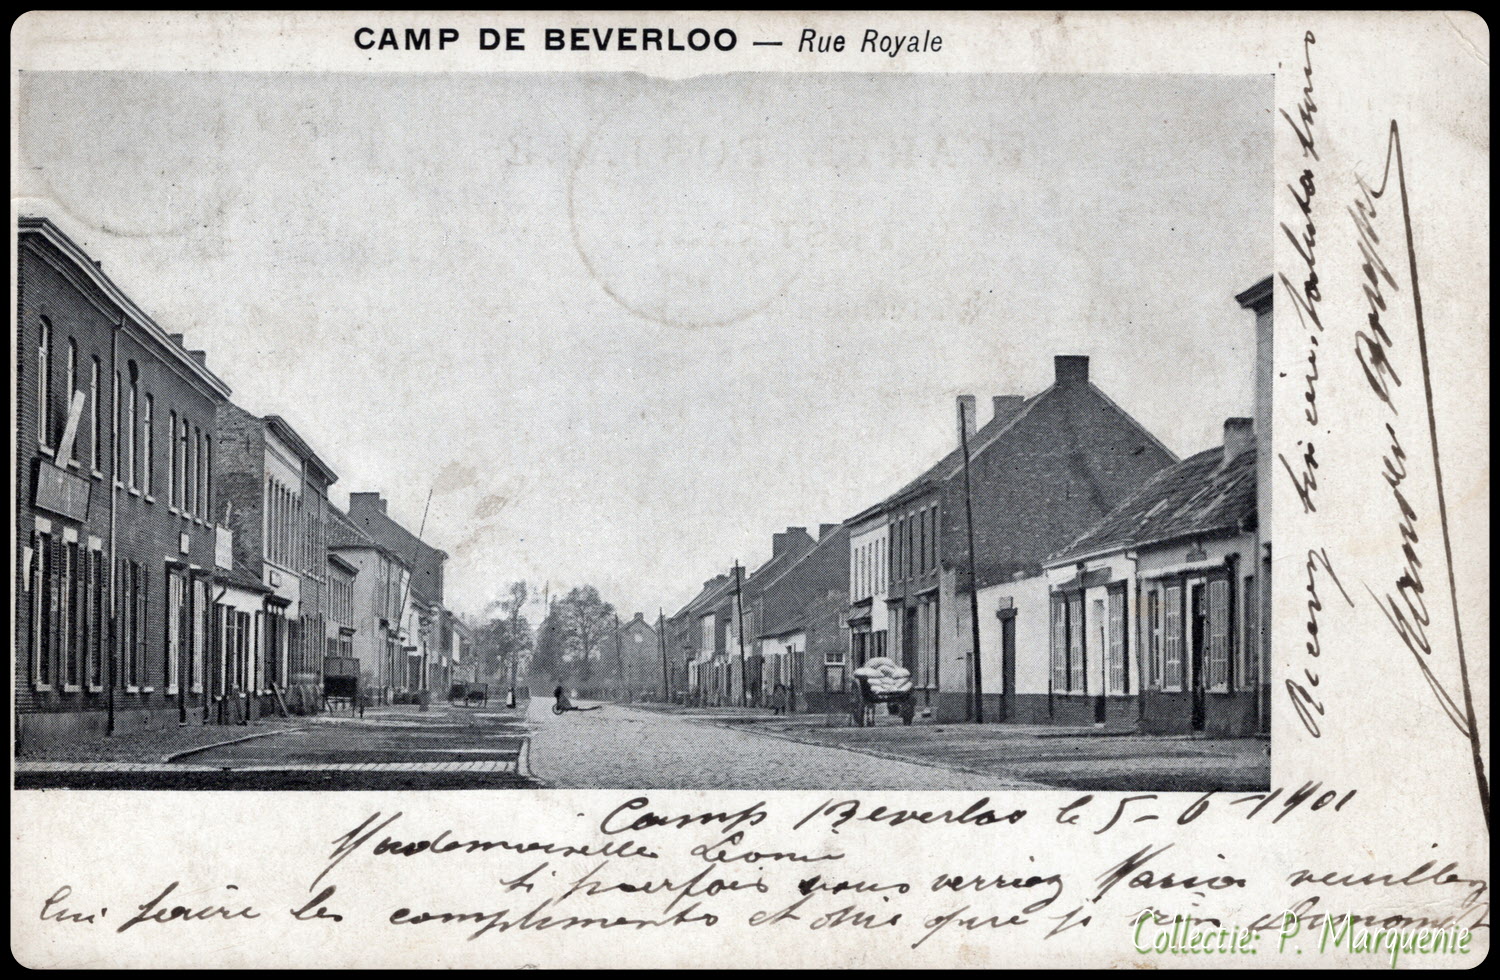 CAMP DE BEVERLOO — Rue Royale
Camp Beverloo le 5-6-1901
Mademoiselle Léonie
Si parfois vous verriez Maria veuillez
lui faire les compliments et dire que je
Recevez
Collectie: P. Marquenie